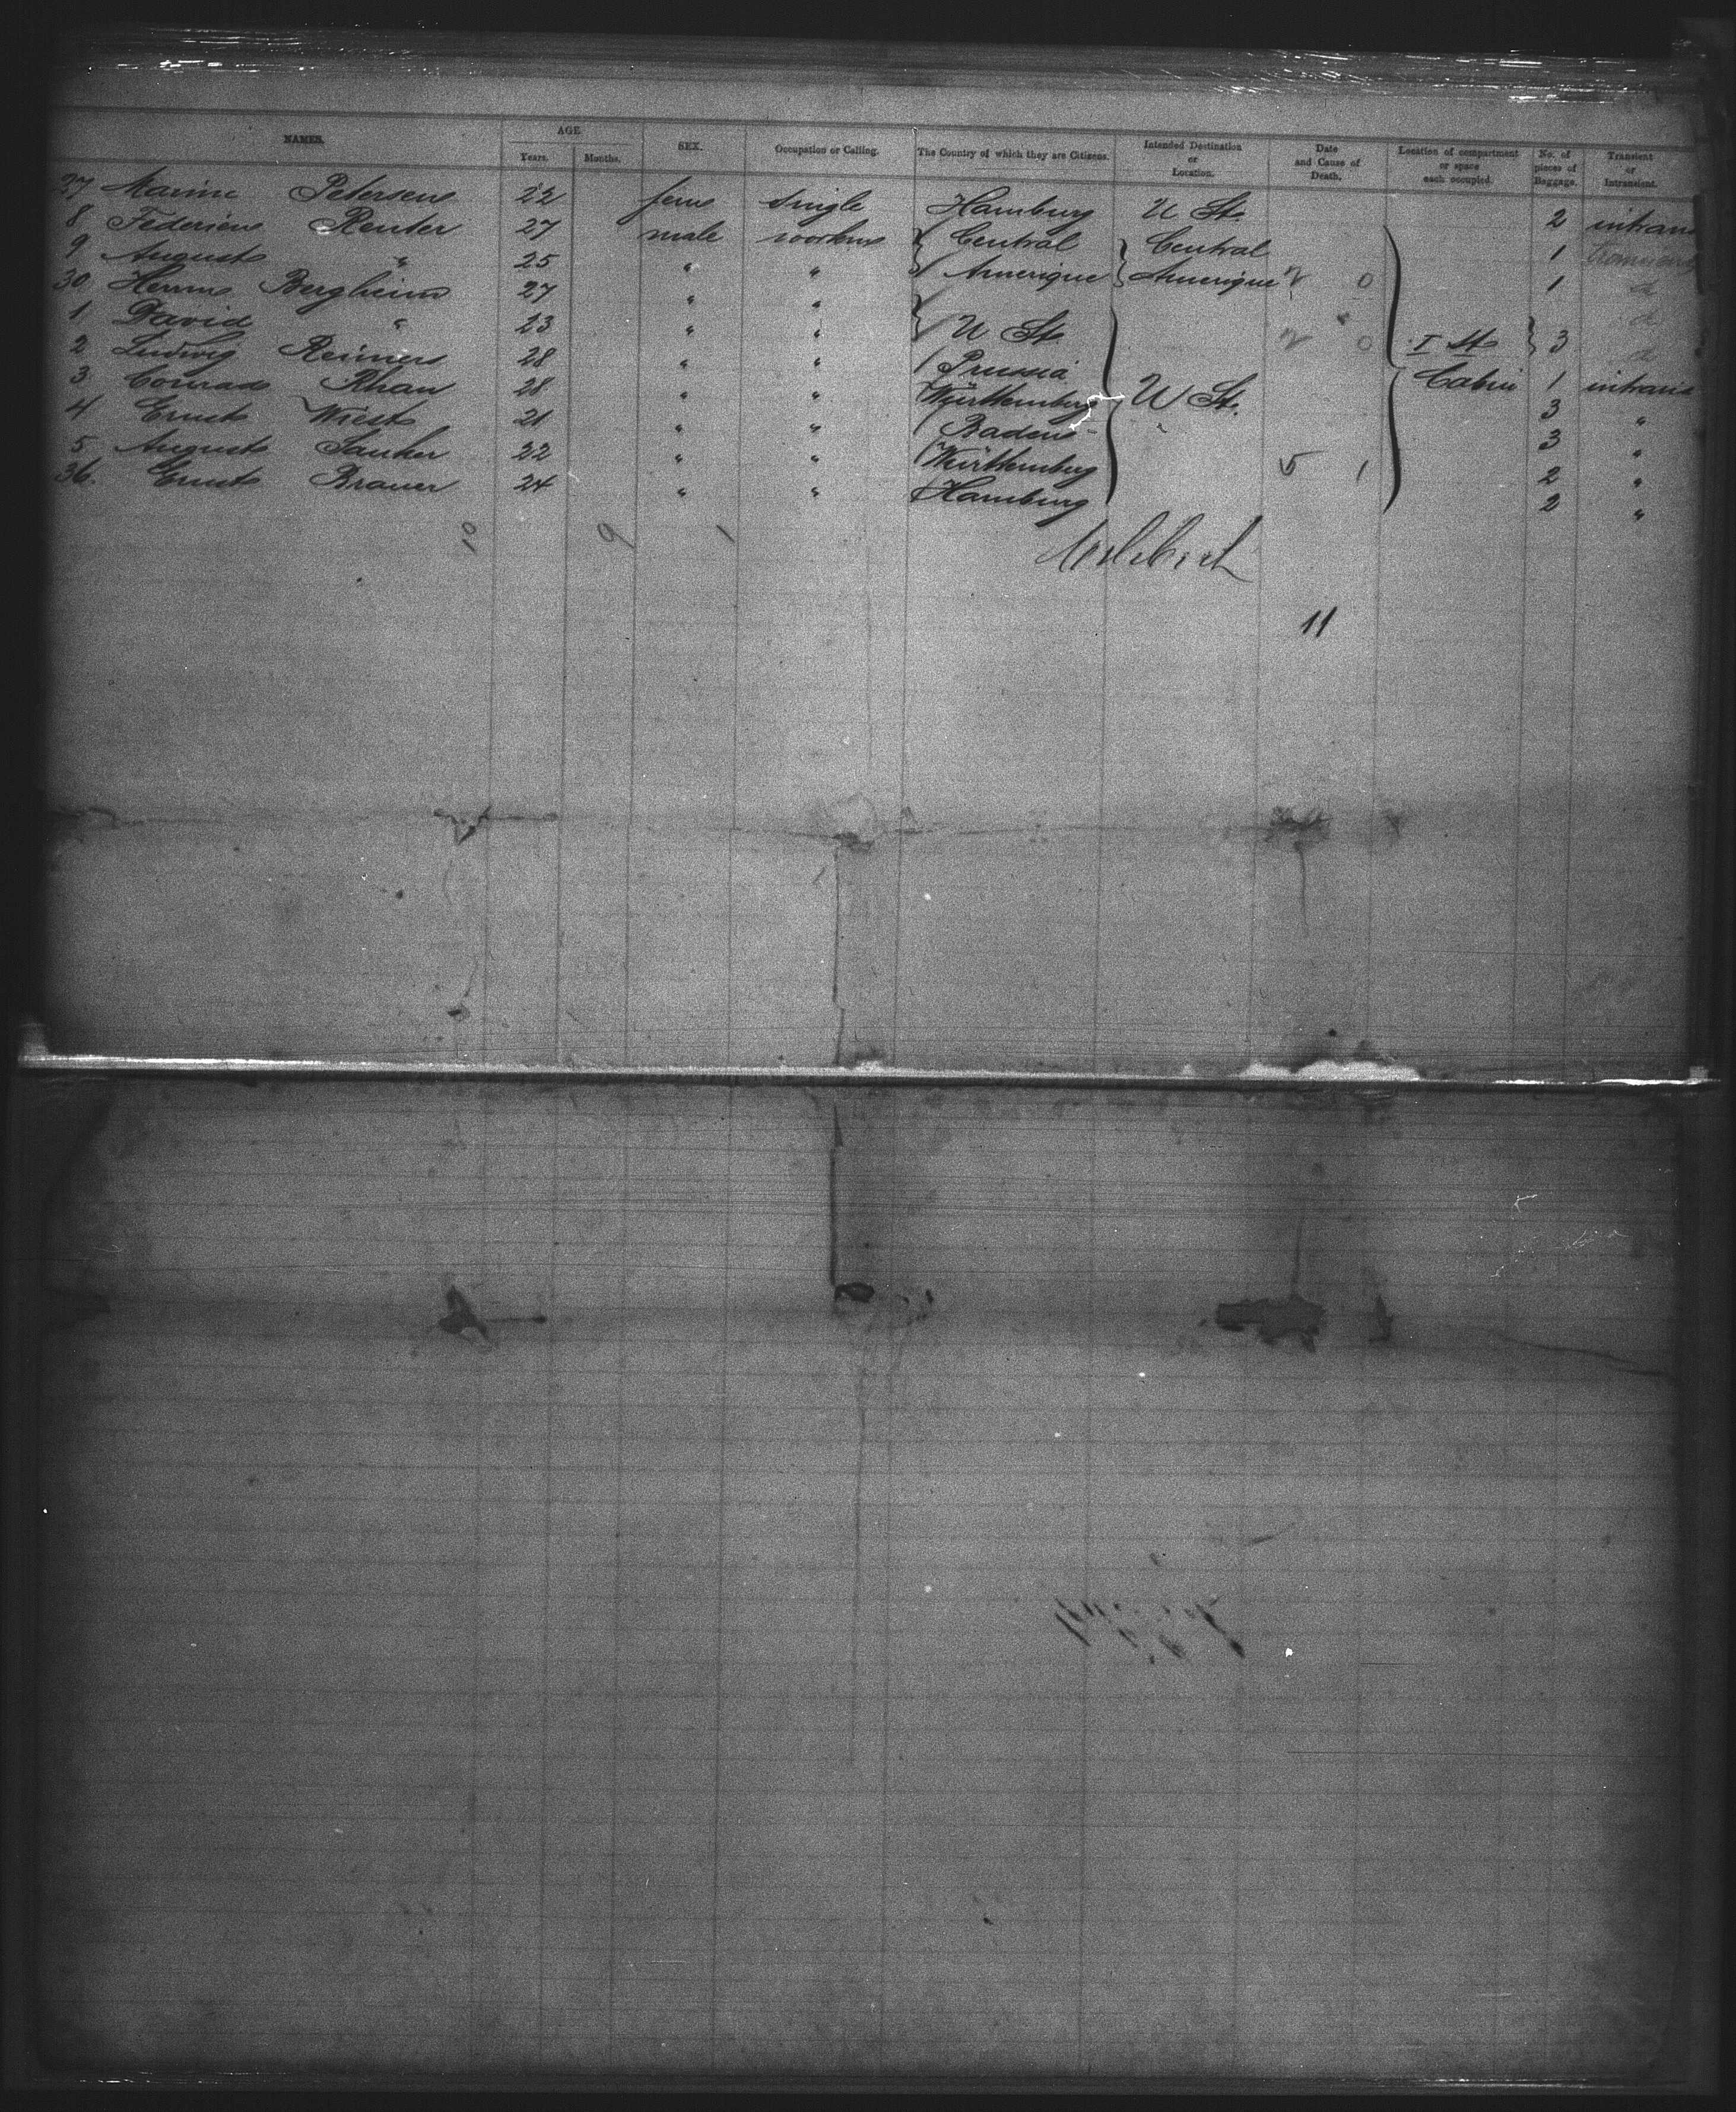 NAMES. AGE Years. Months. SEX. Occupation or Calling. The Country of which they are Citizens. Intended Destination or Location. Date and Cause of Death. Location of compartment or space each occupied. No. of pieces of Baggage. Transient or Intransient.
27 Petersen 22 fem single Hamburg U St. 2 intrans
8 Reuter 27 male Central Central 1
9 August " 25 " " Amerique Amerique 2 0 1 d
30 Bergheim 27 " " d
1 David " 23 " " U St. 2 0 I st 3 d
2 Ludwig Reimers 28 " " Prussia Cabin 1 intrans
3 Conrad Rhan 28 " " Württemberg U St. 3 "
4 Ernst Wiest 21 " " Baden 3 "
5 August Sauker 22 " " Württemberg 5 1 2 "
36. Ernst Brauer 24 " " Hamburg 2 "
10 9 1
11